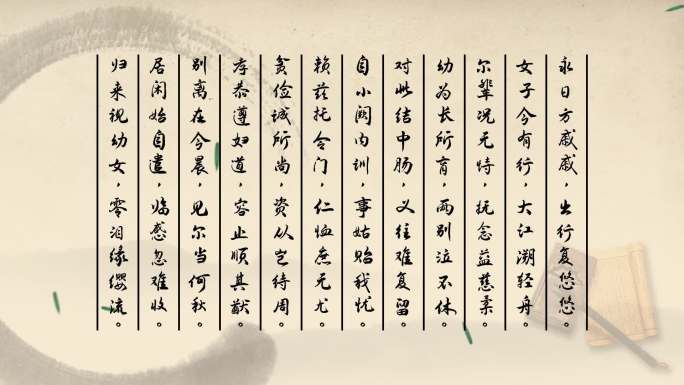 永日方戚戚，出行复悠悠。
女子今有行，大江溯轻舟。
尔辈况无恃，抚念益慈柔。
幼为长所育，两别泣不休。
对此结中肠，义往难复留。
自小阙内训，事姑贻我忧。
赖兹托令门，仁恤庶无尤。
贫俭诚所尚，资从岂待周。
孝恭遵妇道，容止顺其猷。
别离在今晨，见尔当何秋。
居闲始自遣，临感忽难收。
归来视幼女，零泪缘缨流。